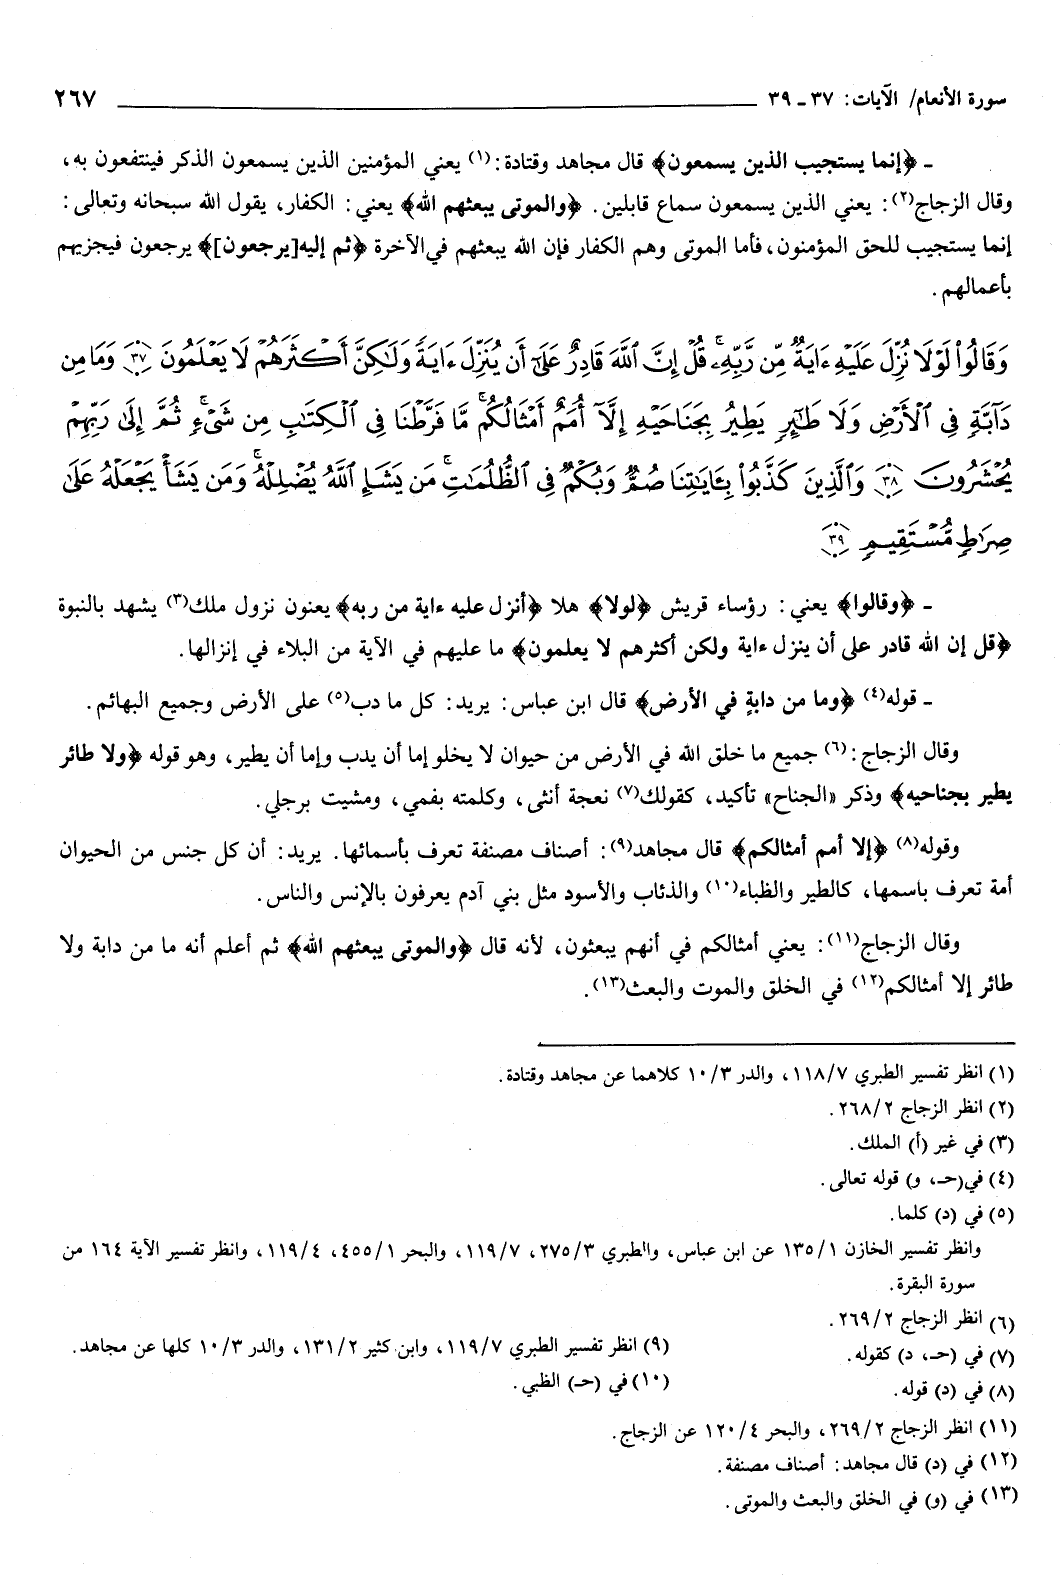 سورة الأنعام/ الآيات: ٣٧ ـ ٣٩ ٢٦٧
ـ ﴿إنما يستجيب الذين يسمعون﴾ قال مجاهد وقتادة:(١) يعني المؤمنين الذين يسمعون الذكر فينتفعون به،
وقال الزجاج(٢): يعني الذين يسمعون سماع قابلين. ﴿والموتى يبعثهم الله﴾ يعني: الكفار، يقول الله سبحانه وتعالى:
إنما يستجيب للحق المؤمنون، فأما الموتى وهم الكفار فإن الله يبعثهم في الآخرة ﴿ثم إليه[يرجعون]﴾ يرجعون فيجزيهم
بأعمالهم.
وَقَالُواْ لَوْلَا نُزِّلَ عَلَيْهِ ءَايَةٌ مِّن رَّبِّهِۦۚ قُلْ إِنَّ ٱللَّهَ قَادِرٌ عَلَىٰٓ أَن يُنَزِّلَ ءَايَةً وَلَٰكِنَّ أَكْثَرَهُمْ لَا يَعْلَمُونَ ٣٧ وَمَا مِن
دَآبَّةٍ فِي ٱلْأَرْضِ وَلَا طَٰٓئِرٍ يَطِيرُ بِجَنَاحَيْهِ إِلَّآ أُمَمٌ أَمْثَالُكُمۚ مَّا فَرَّطْنَا فِي ٱلْكِتَٰبِ مِن شَيْءٍۚ ثُمَّ إِلَىٰ رَبِّهِمْ
يُحْشَرُونَ ٣٨ وَٱلَّذِينَ كَذَّبُواْ بِـَٔايَٰتِنَا صُمٌّ وَبُكْمٌ فِي ٱلظُّلُمَٰتِۗ مَن يَشَإِ ٱللَّهُ يُضْلِلْهُۚ وَمَن يَشَأْ يَجْعَلْهُ عَلَىٰ
صِرَٰطٍ مُّسْتَقِيمٍ ٣٩
ـ ﴿وقالوا﴾ يعني: رؤساء قريش ﴿لولا﴾ هلا ﴿أنزل عليه ءاية من ربه﴾ يعنون نزول ملك(٣) يشهد بالنبوة
﴿قل إن الله قادر على أن ينزل ءاية ولكن أكثرهم لا يعلمون﴾ ما عليهم في الآية من البلاء في إنزالها.
ـ قوله(٤) ﴿وما من دابةٍ في الأرض﴾ قال ابن عباس: يريد: كل ما دب(٥) على الأرض وجميع البهائم.
وقال الزجاج:(٦) جميع ما خلق الله في الأرض من حيوان لا يخلو إما أن يدب وإما أن يطير، وهو قوله ﴿ولا طائر
يطير بجناحيه﴾ وذكر «الجناح» تأكيد، كقولك(٧) نعجة أنثى، وكلمته بفمي، ومشيت برجلي.
وقوله(٨) ﴿إلا أمم أمثالكم﴾ قال مجاهد(٩): أصناف مصنفة تعرف بأسمائها. يريد: أن كل جنس من الحيوان
أمة تعرف باسمها، كالطير والظباء(١٠) والذئاب والأسود مثل بني آدم يعرفون بالإنس والناس.
وقال الزجاج(١١): يعني أمثالكم في أنهم يبعثون، لأنه قال ﴿والموتى يبعثهم الله﴾ ثم أعلم أنه ما من دابة ولا
طائر إلا أمثالكم(١٢) في الخلق والموت والبعث(١٣).
(١) انظر تفسير الطبري ١١٨/٧، والدر ١٠/٣ كلاهما عن مجاهد وقتادة.
(٢) انظر الزجاج ٢٦٨/٢.
(٣) في غير (أ) الملك.
(٤) في(حـ، و) قوله تعالى.
(٥) في (د) كلما.
وانظر تفسير الخازن ١٣٥/١ عن ابن عباس، والطبري ٢٧٥/٣، ١١٩/٧، والبحر ٤٥٥/١، ١١٩/٤، وانظر تفسير الآية ١٦٤ من
سورة البقرة.
(٦) انظر الزجاج ٢٦٩/٢.
(٧) في (حـ، د) كقوله.
(٨) في (د) قوله.
(٩) انظر تفسير الطبري ١١٩/٧، وابن كثير ١٣١/٢، والدر ١٠/٣ كلها عن مجاهد.
(١٠) في (حـ) الظبي.
(١١) انظر الزجاج ٢٦٩/٢، والبحر ١٢٠/٤ عن الزجاج.
(١٢) في (د) قال مجاهد: أصناف مصنفة.
(١٣) في (و) في الخلق والبعث والموتى.